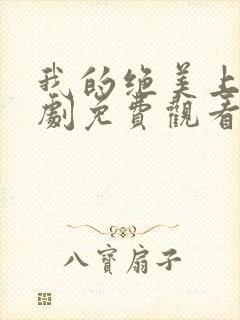 我的绝美上
劇免費觀看
八寶扇子